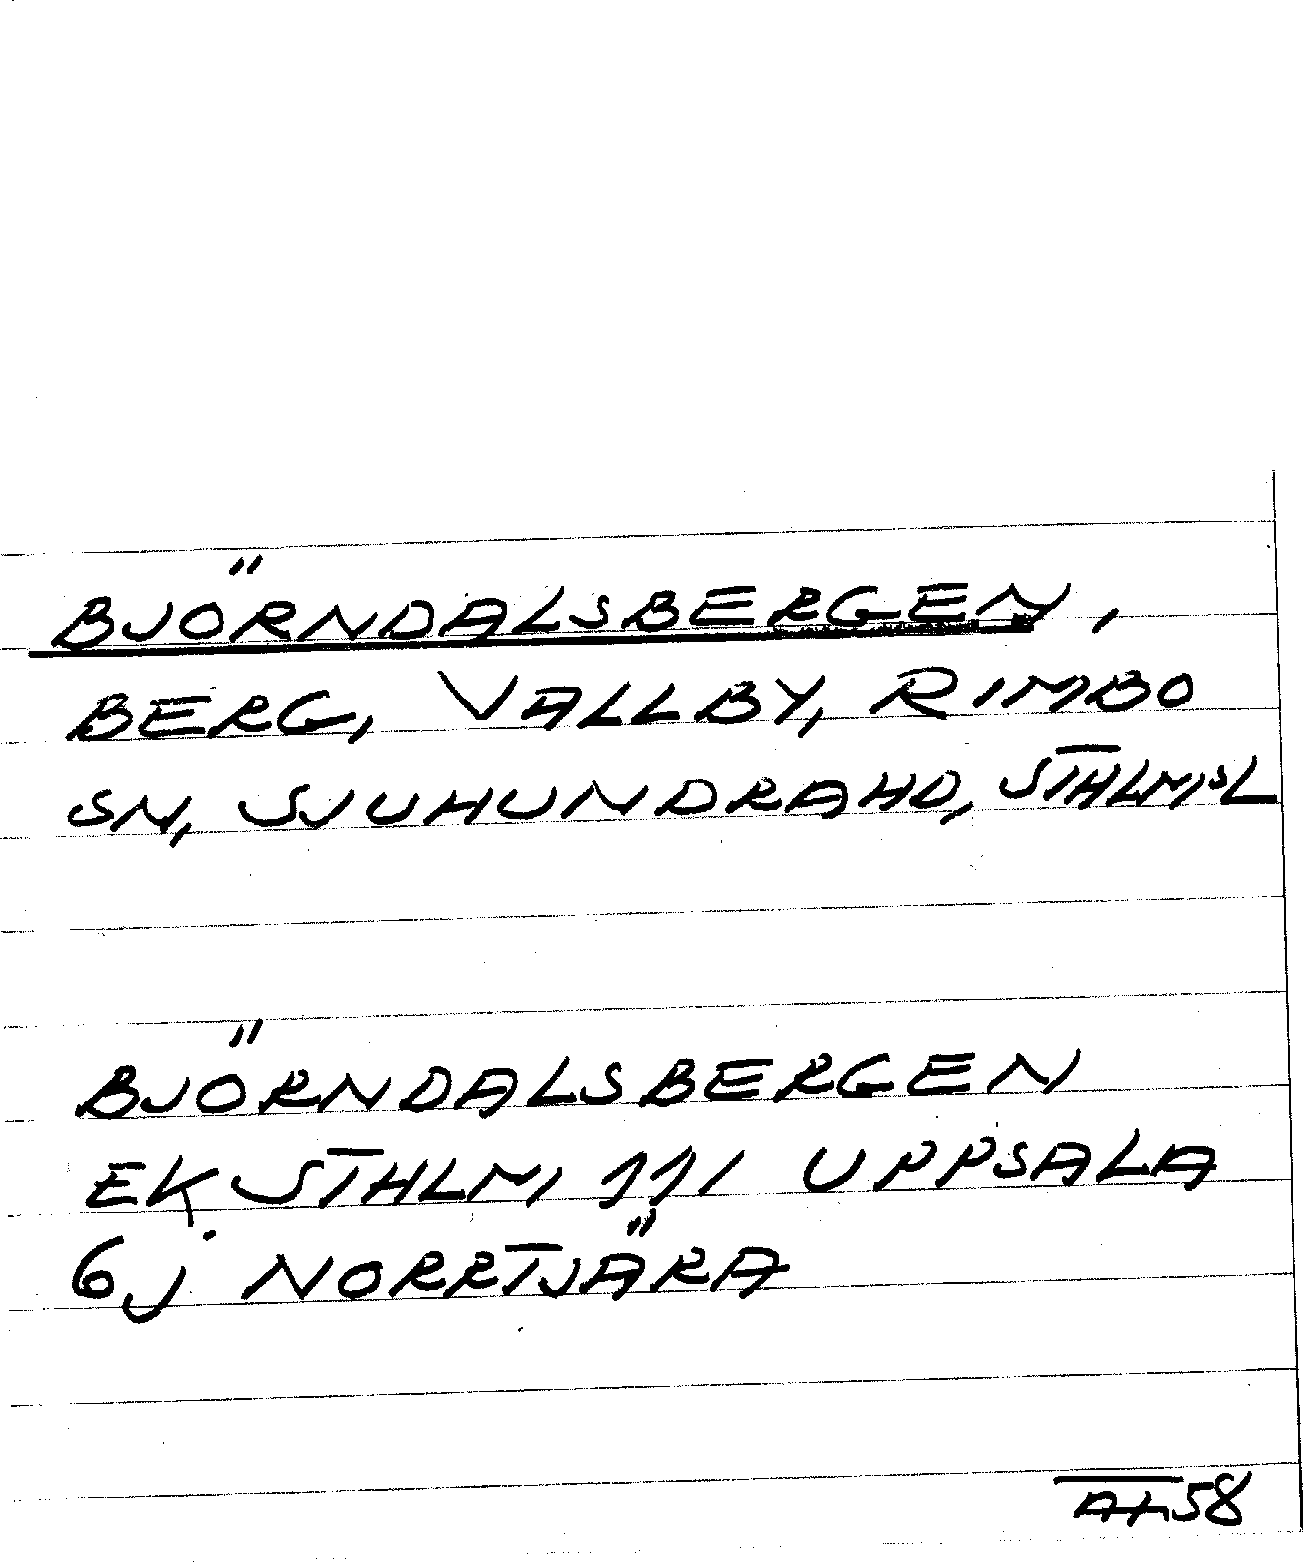 BJÖRNDALSBERGEN,
BERG, VALLBY, RIMBO
SN, SJUHUNDRA HD, STHLMSL
BJÖRNDALSBERGEN
EK STHLM 111 UPPSALA
6j NORRTJÄRA
58